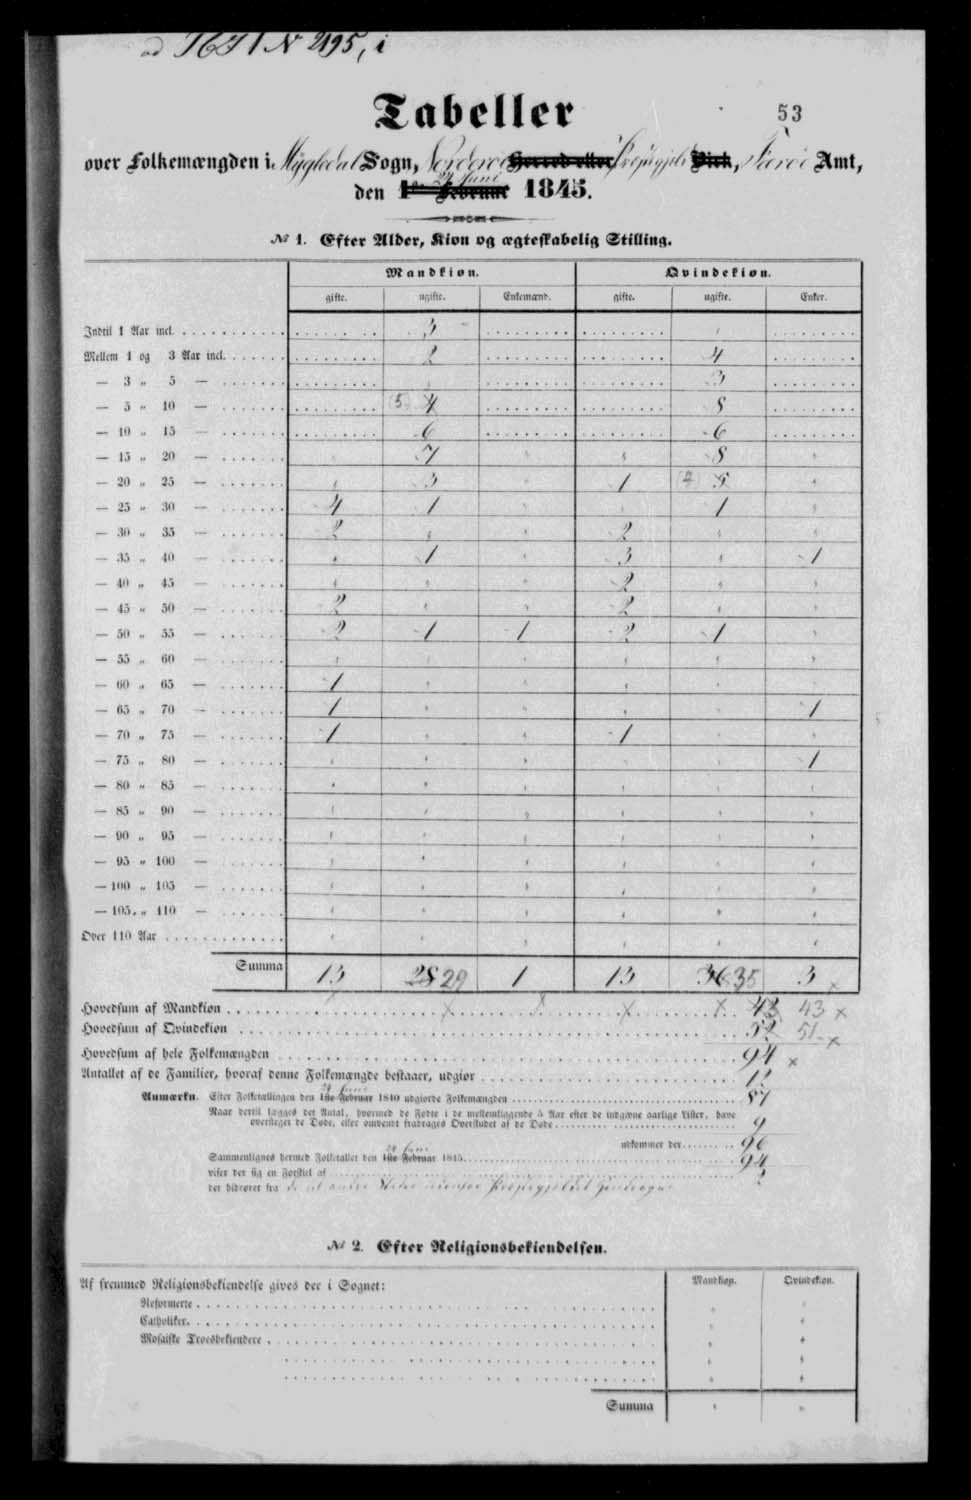 ad N 2195, i
53
Tabeller
over Folkemængden i Mygledal Sogn, Norderöe Herred eller Præstegjeld Birk, Færöe Amt,
24 Juni
den 1ste Februar 1845.
№ 1. Efter Alder, Kion og ægteskabelig Stilling.
Mandkion. Qvindekion.
gifte. ugifte. Enkemænd. gifte. ugifte. Enker.
Indtil 1 Aar incl. 3
Mellem 1 og 3 Aar incl. 2 4
— 3 „ 5 — 3
— 5 „ 10 — (5) 4 8
— 10 „ 15 — 6 6
— 15 „ 20 — 7 8
— 20 „ 25 — 3 1 (4) 5
— 25 „ 30 — 4 1 1
— 30 „ 35 — 2 2
— 35 „ 40 — 1 3 1
— 40 „ 45 — 2
— 45 „ 50 — 2 2
— 50 „ 55 — 2 1 1 2 1
— 55 „ 60 —
— 60 „ 65 — 1
— 65 „ 70 — 1 1
— 70 „ 75 — 1 1
— 75 „ 80 — 1
— 80 „ 85 —
— 85 „ 90 —
— 90 „ 95 —
— 95 „ 100 —
— 100 „ 105 —
— 105 „ 110 —
Over 110 Aar
Summa 13 28 29 1 13 36 35 3
Hovedsum af Mandkion 42 43
Hovedsum af Qvindekion 52 51
Hovedsum af hele Folkemængden 94
Antallet af de Familier, hvoraf denne Folkemængde bestaaer, udgiør 12
24 Juni
Anmærkn. Efter Folketællingen den 1ste Februar 1840 udgiorde Folkemængden 87
Naar dertil lægges det Antal, hvormed de Fødte i de mellemliggende 5 Aar efter de indgivne aarlige Lister, have
oversteget de Døde, eller omvendt fradrages Overskudet af de Døde 9
udkommer der 96
24 Juni
Sammenlignes hermed Folketallet den 1ste Februar 1845 94
viser der sig en Forskiel af 2
der hidrører fra
№ 2. Efter Religionsbekiendelsen.
Af fremmed Religionsbekiendelse gives der i Sognet: Mandkion. Qvindekion.
Reformerte
Catholiker
Mosaiske Troesbekiendere
Summa